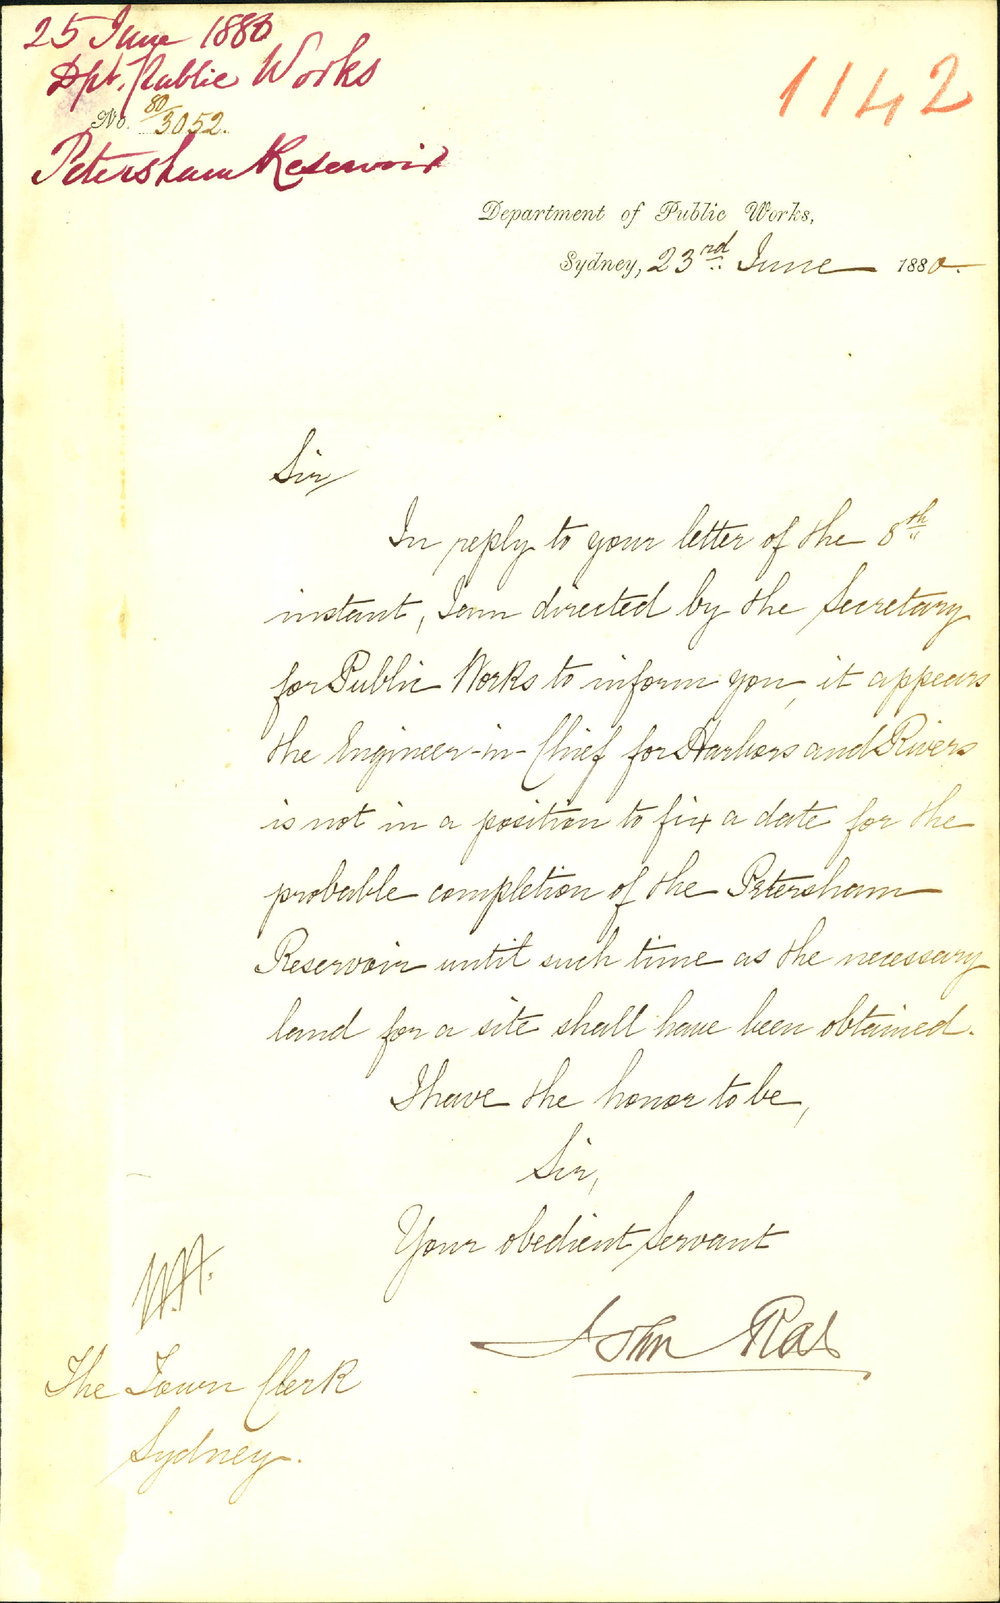 25 June 1880
Dpt. Public Works
1142
No. 80/3052.
Petersham Reservoir
Department of Public Works,
Sydney, 23rd June 1880.
Sir
In reply to your letter of the 8th
instant, I am directed by the Secretary
for Public Works to inform you, it appears
the Engineer-in-Chief for Harbors and Rivers
is not in a position to fix a date for the
probable completion of the Petersham
Reservoir until such time as the necessary
land for a site shall have been obtained.
I have the honor to be,
Sir,
Your obedient Servant
John Rae
The Town Clerk
Sydney.